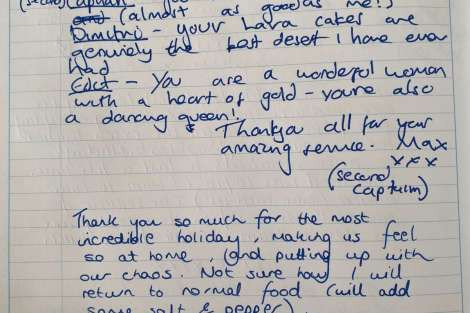 (second) Captain
and (almost as good as me!)
Dimitri - your Lava cakes are
genuinely the best desert I have ever
had
- You are a wonderful woman
with a heart of gold - youre also
a dancing queen!
Thankya all for your
amazing service. Max
xxx
(second
captain)
Thank you so much for the most
incredible holiday, making us feel
so at home, (and putting up with
our chaos. Not sure how I will
return to normal food (will add
some salt & pepper)